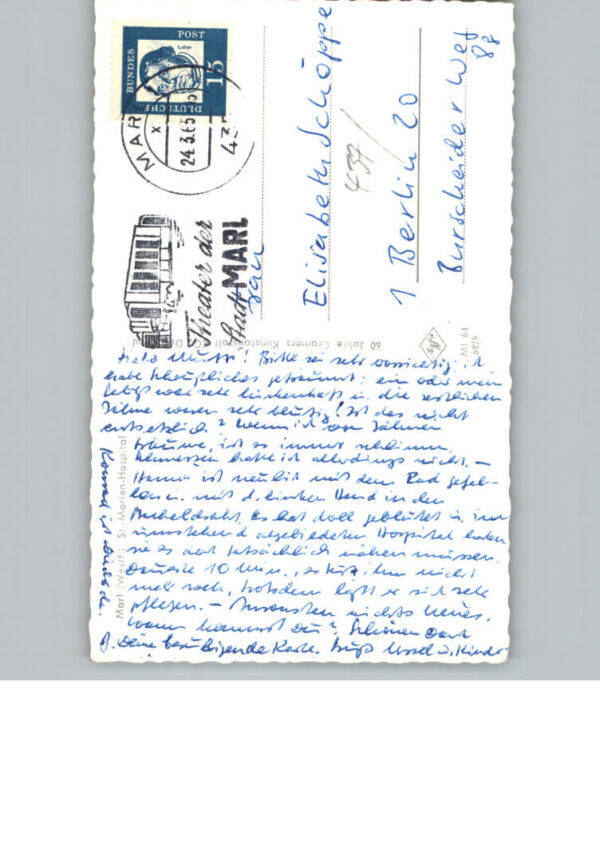 DEUTSCHE
BUNDES
POST
Luther
15
MARL
24.3.63
437
Theater der
Stadt MARL
Frau
Elisabeth Schöppe
437/
1 Berlin 20
Burscheider Weg
8g
60 Jahre Cramers Kunstanstalt
Marl (Westf.) St.-Marien-Hospital
Liebe Mutti! Bitte sei sehr vorsichtig, ich
habe Scheußliches geträumt: ein oder mein
Gebiß war sehr lückenhaft u. die restlichen
Zähne waren sehr blutig! Ist das nicht
entsetzlich? Wenn ich von Zähnen
träume, ist es immer schlimm,
Schmerzen hatte ich allerdings nicht. –
Hanno ist neulich mit dem Rad gefal-
len u. mit d. linken Hand in den
Stacheldraht. Es hat doll geblutet u. im
umstehend abgebildeten Hospital haben
sie es dort tatsächlich nähen müssen.
Dauerte 10 Min., es tut ihm nicht
mehr weh, trotzdem läßt er sich sehr
pflegen. – Ansonsten nichts Neues.
Wann kommst Du? Schönen Dank
f. Deine beruhigende Karte. Gruß Ursel u. Kinder
Konrad ist